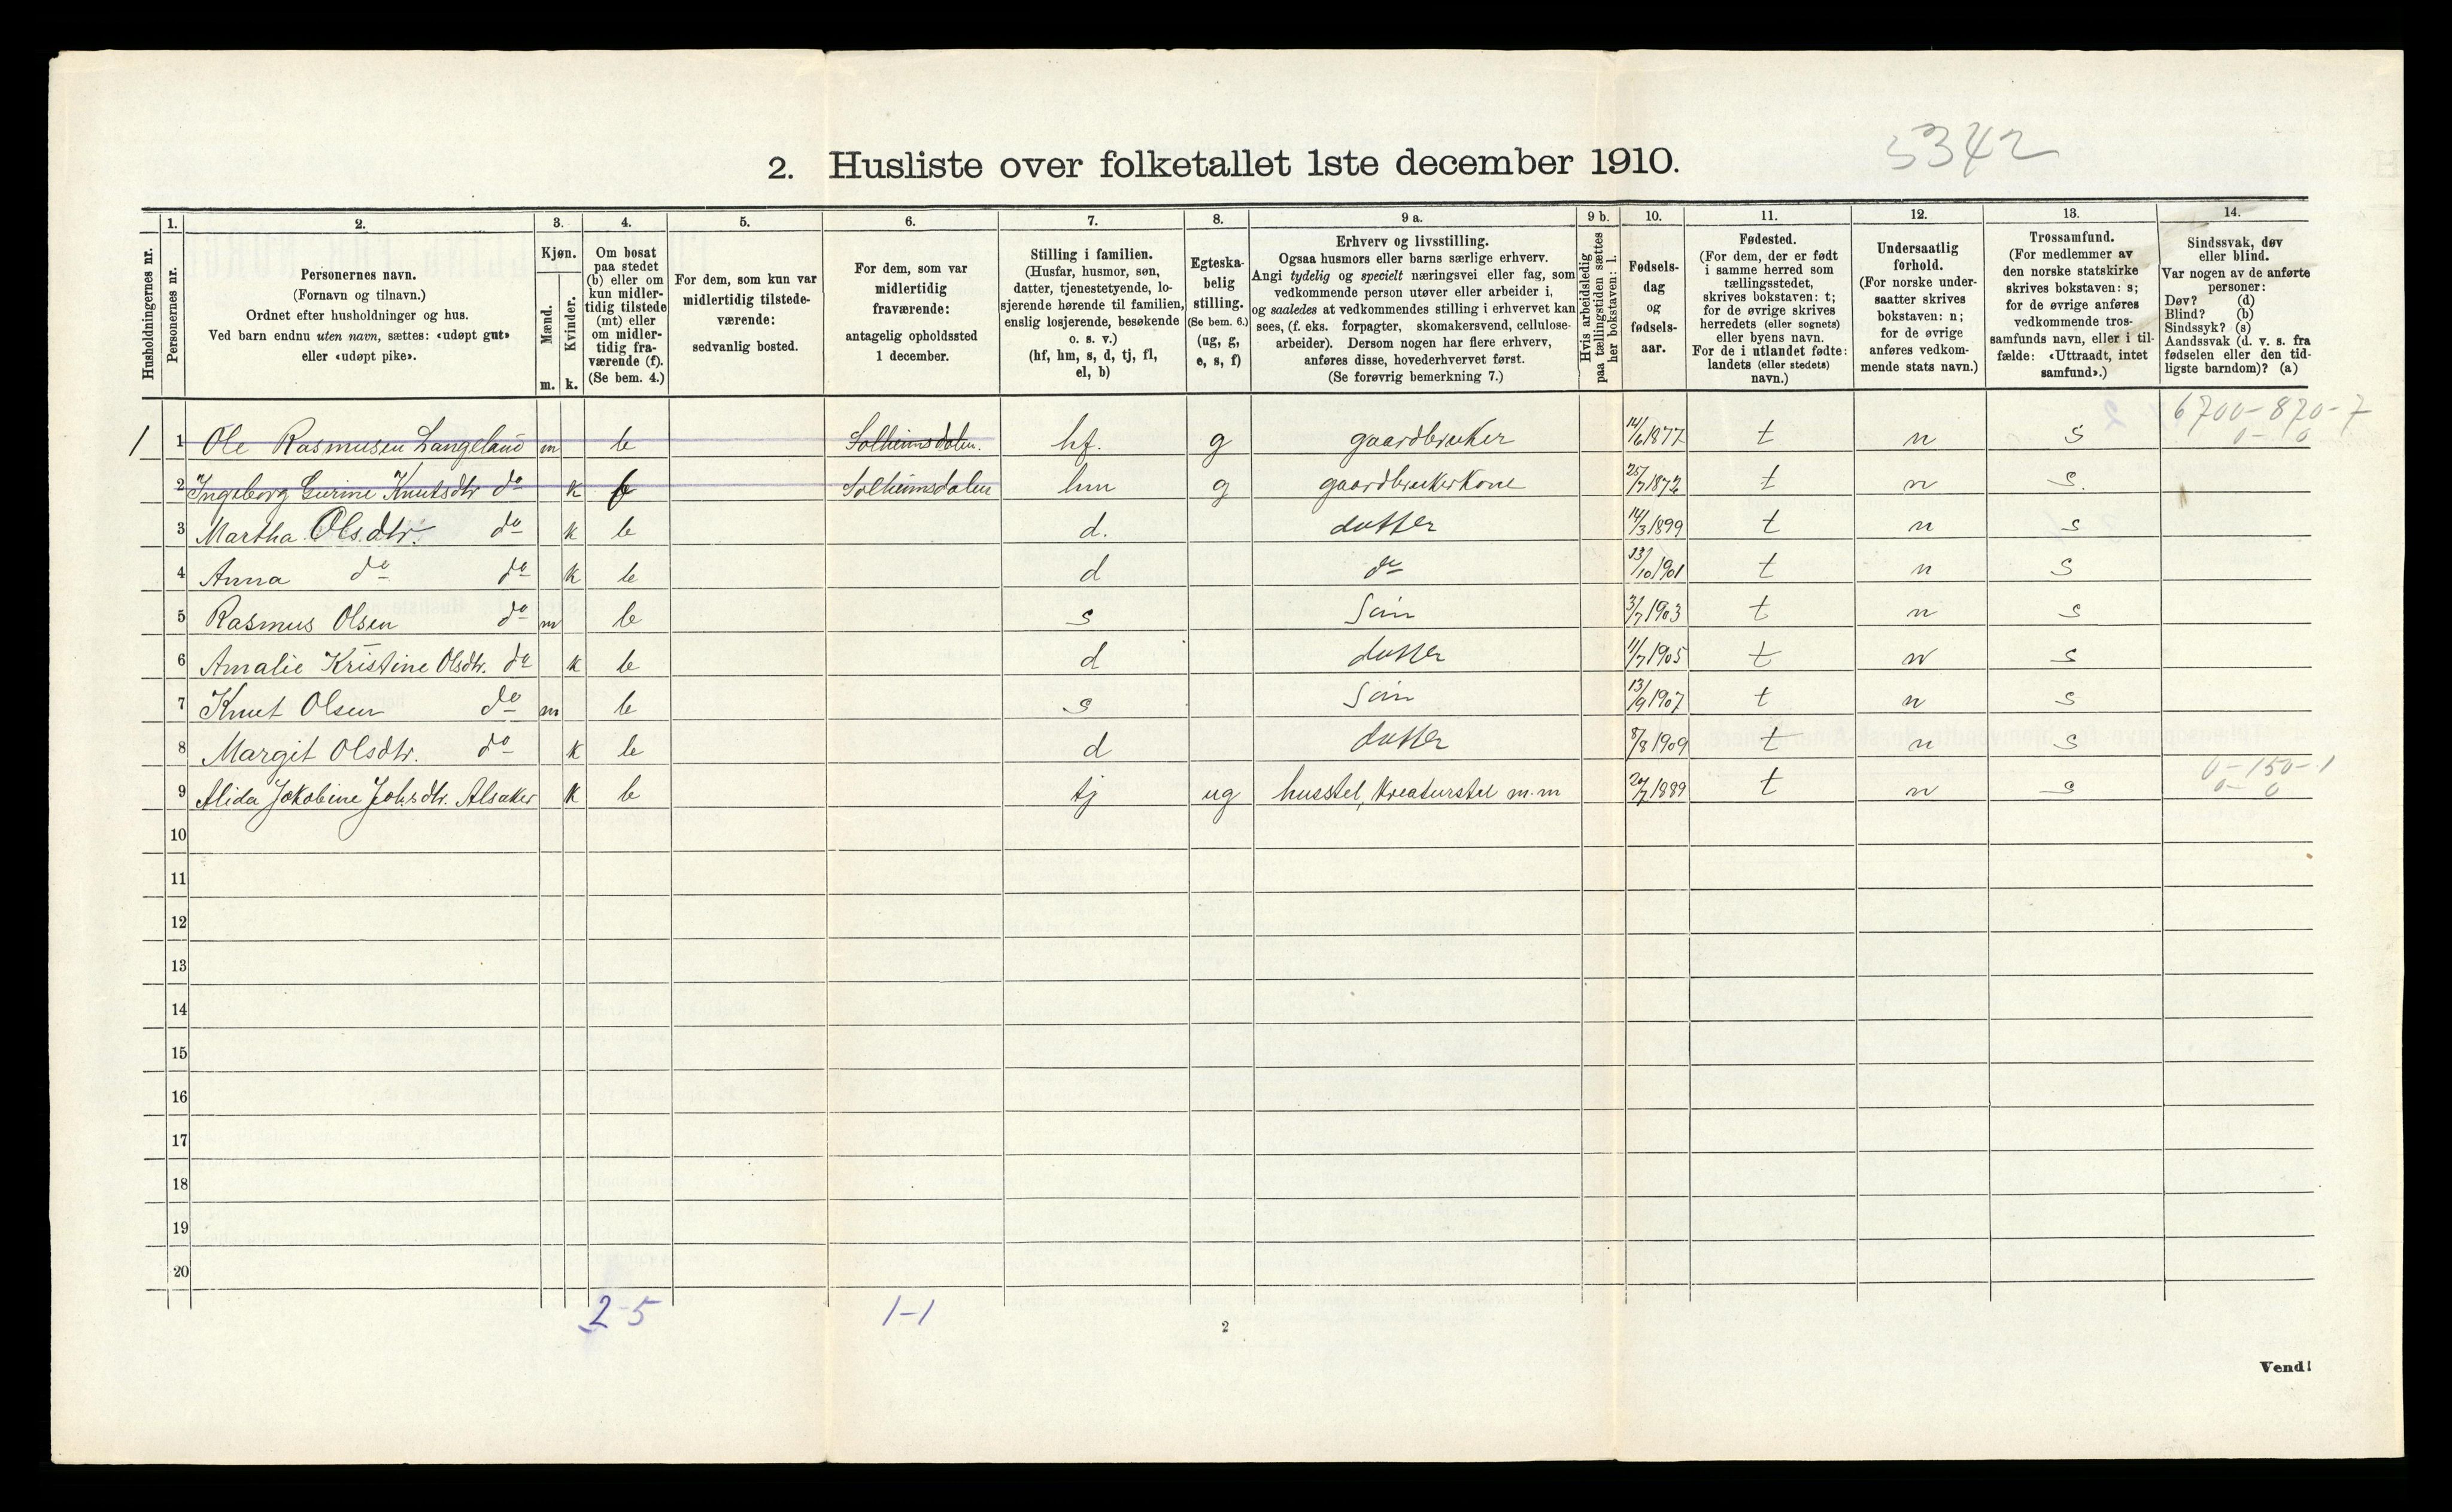 5342
2. Husliste over folketallet 1ste december 1910.
Husholdningernes nr.
1.
Personernes nr.
2.
Personernes navn.
(Fornavn og tilnavn.)
Ordnet efter husholdninger og hus.
Ved barn endnu uten navn, sættes: «udøpt gut»
eller «udøpt pike».
3.
Kjøn.
Mænd.
Kvinder.
m. k.
4.
Om bosat
paa stedet
(b) eller om
kun midler-
tidig tilstede
(mt) eller
om midler-
tidig fra-
værende (f).
(Se bem. 4.)
5.
For dem, som kun var
midlertidig tilstede-
værende:
sedvanlig bosted.
6.
For dem, som var
midlertidig
fraværende:
antagelig opholdssted
1 december.
7.
Stilling i familien.
(Husfar, husmor, søn,
datter, tjenestetyende, lo-
sjerende hørende til familien,
enslig losjerende, besøkende
o. s. v.)
(hf, hm, s, d, tj, fl,
el, b)
8.
Egteska-
belig
stilling.
(Se bem. 6.)
(ug, g,
e, s, f)
9 a.
Erhverv og livsstilling.
Ogsaa husmors eller barns særlige erhverv.
Angi tydelig og specielt næringsvei eller fag, som
vedkommende person utøver eller arbeider i,
og saaledes at vedkommendes stilling i erhvervet kan
sees, (f. eks. forpagter, skomakersvend, cellulose-
arbeider). Dersom nogen har flere erhverv,
anføres disse, hovederhvervet først.
(Se forøvrig bemerkning 7.)
9 b.
Hvis arbeidsledig
paa tællingstiden sættes
her bokstaven: l.
10.
Fødsels-
dag
og
fødsels-
aar.
11.
Fødested.
(For dem, der er født
i samme herred som
tællingsstedet,
skrives bokstaven: t;
for de øvrige skrives
herredets (eller sognets)
eller byens navn.
For de i utlandet fødte:
landets (eller stedets)
navn.)
12.
Undersaatlig
forhold.
(For norske under-
saatter skrives
bokstaven: n;
for de øvrige
anføres vedkom-
mende stats navn.)
13.
Trossamfund.
(For medlemmer av
den norske statskirke
skrives bokstaven: s;
for de øvrige anføres
vedkommende tros-
samfunds navn, eller i til-
fælde: «Uttraadt, intet
samfund».)
14.
Sindssvak, døv
eller blind.
Var nogen av de anførte
personer:
Døv? (d)
Blind? (b)
Sindssyk? (s)
Aandssvak (d. v. s. fra
fødselen eller den tid-
ligste barndom)? (a)
1 1 Ole Rasmusen Langeland m b Solheimsdalen. hf. g gaardbruker 14/6 1877 t n s 6700-820-7 0-0
2 Ingeborg Gurine Knutsdtr do k f Solheimsdalen hm g gaardbrukerkone 25/7 1872 t n s.
3 Martha Olsdtr. do k b d. datter 14/3 1899 t n s
4 Anna do do k b d do 23/10 1901 t n s
5 Rasmus Olsen do m b s Søn 3/7 1903 t n s
6 Amalie Kristine Olsdtr. do k b d datter 11/7 1905 t n s
7 Knut Olsen do m b s Søn 13/9 1907 t n s
8 Margit Olsdtr. do k b d datter 8/8 1909 t n s
9 Alida Jakobine Johsdtr. Alsaker k b tj ug husstel, Kreaturstel m.m 20/7 1889 t n s 0-150-1 0-0
10
11
12
13
14
15
16
17
18
19
20
2-5 1-1
2
Vend!